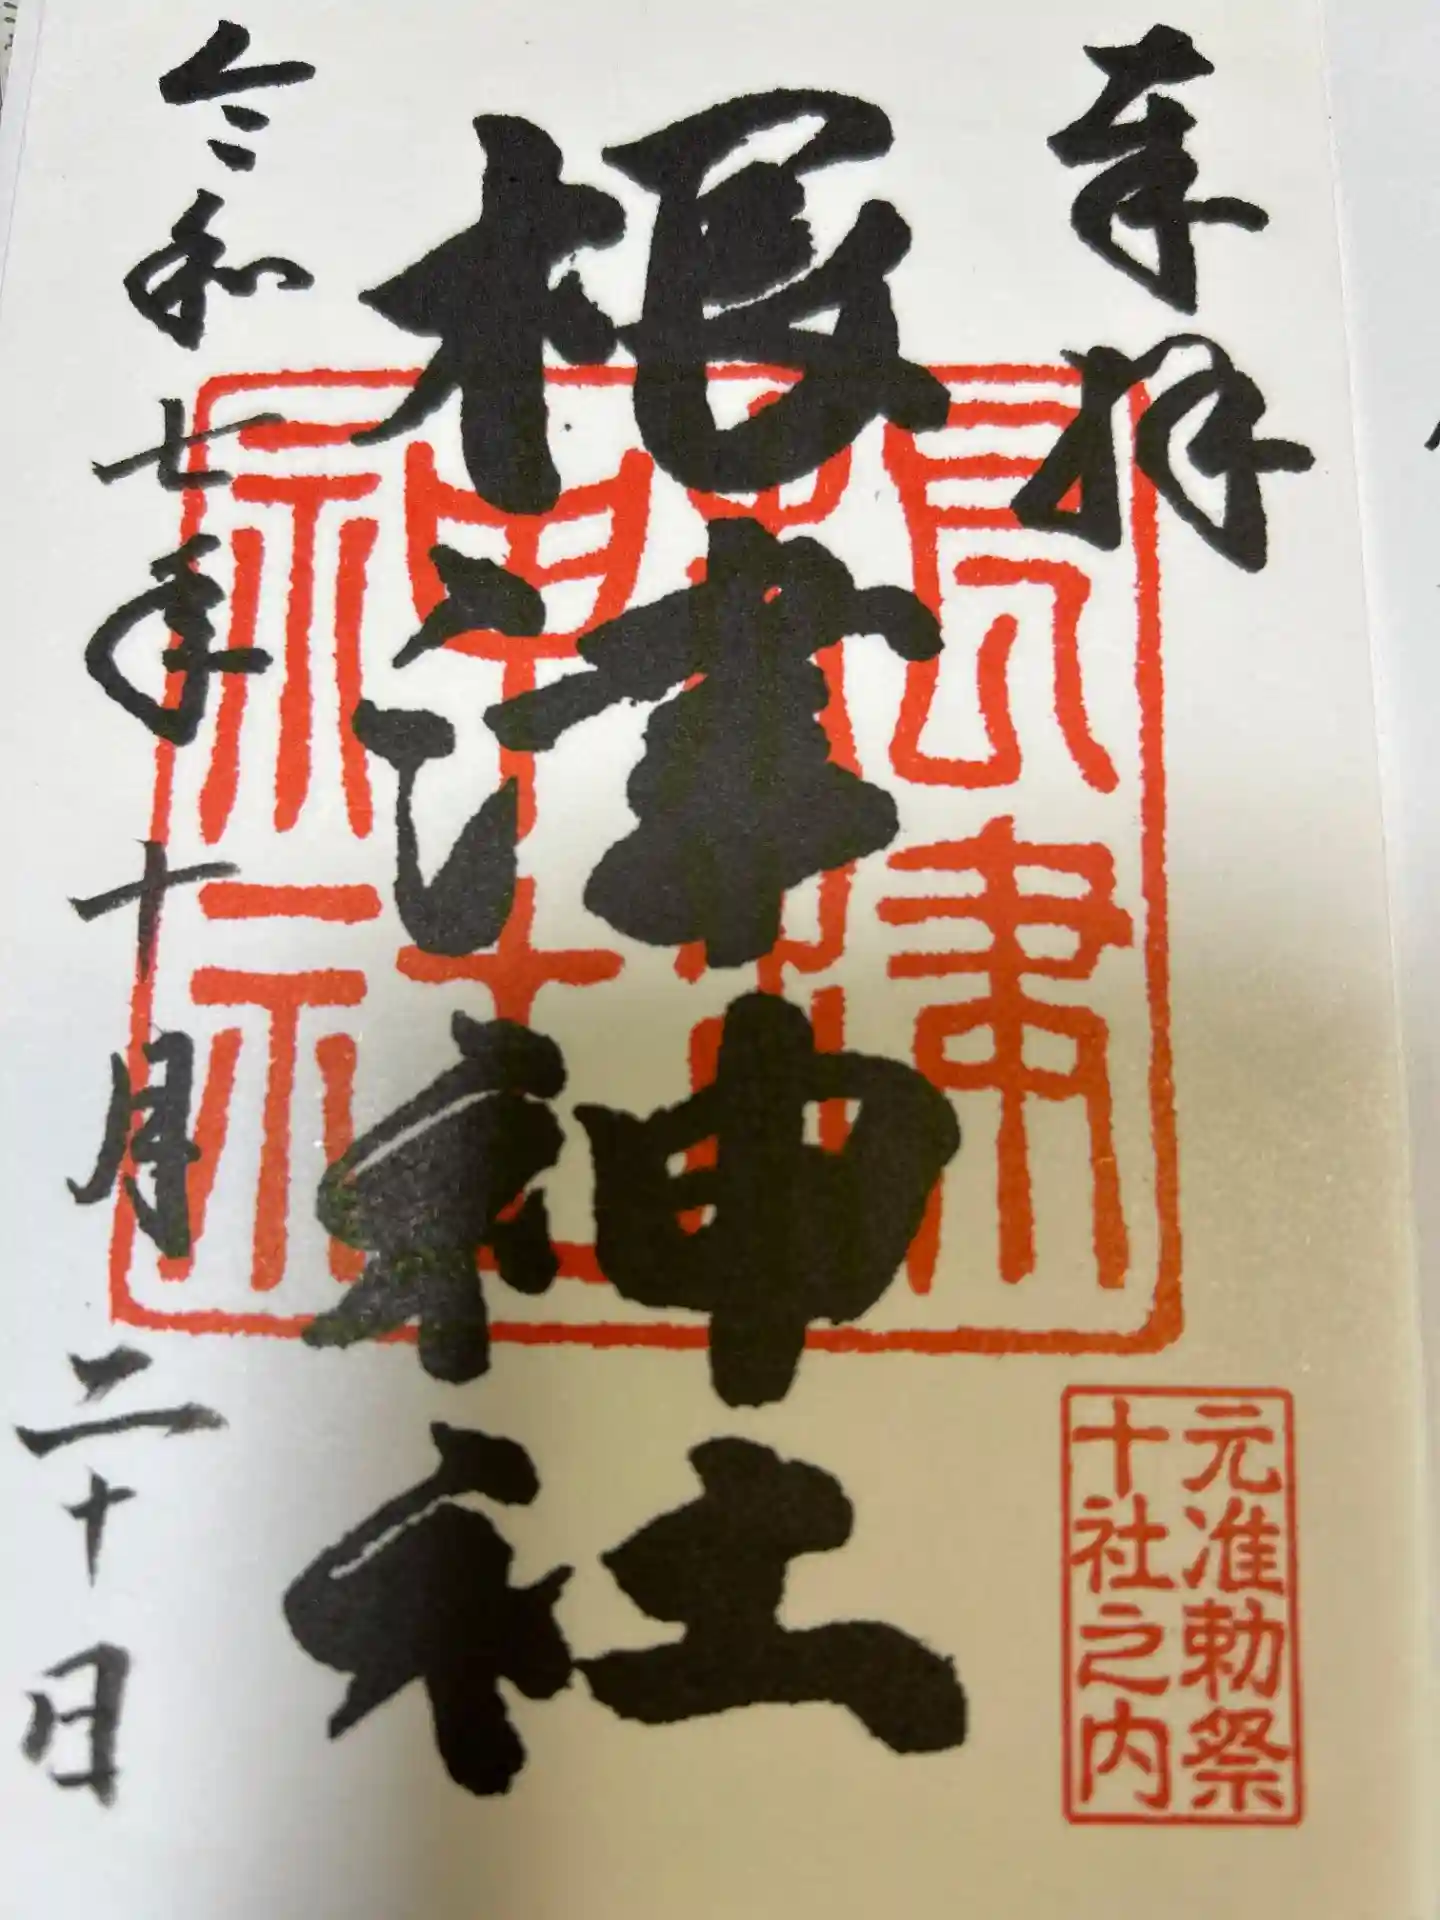 奉拝
根津神社
令和七年十月二十日
元准勅祭
十社之内